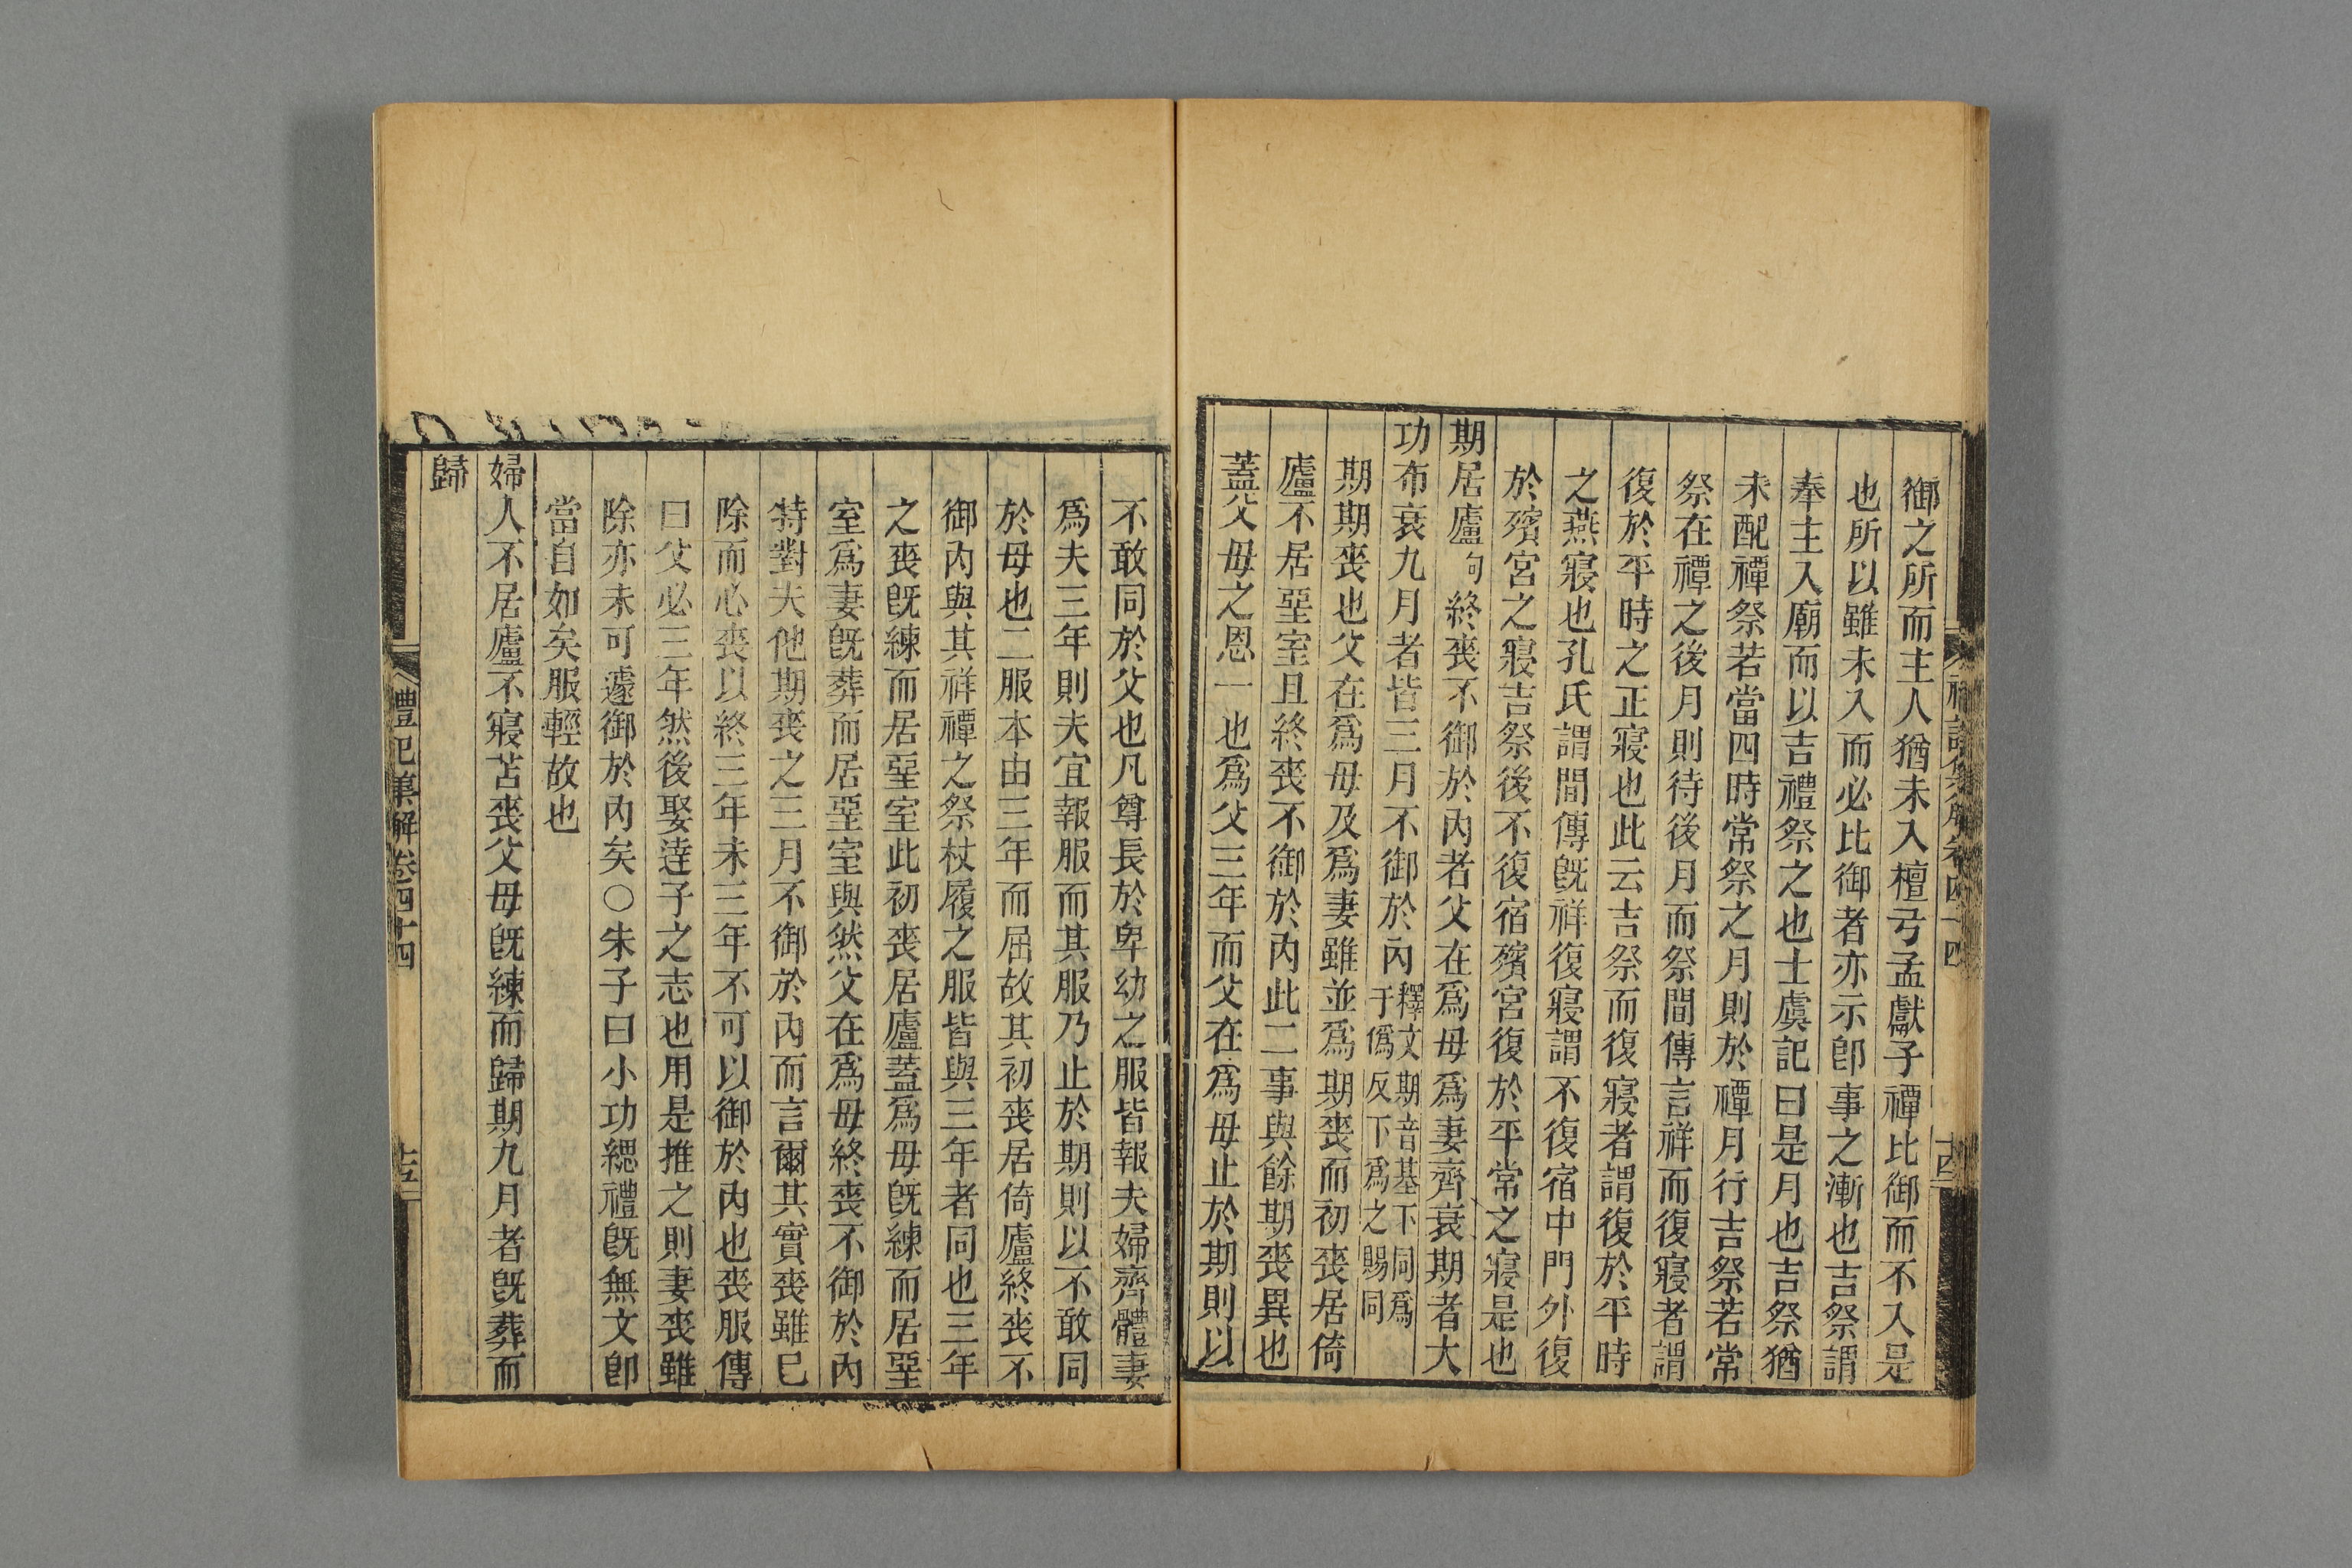 御之所而主人猶未入檀弓孟獻子禫比御而不入是
也所以雖未入而必比御者亦示卽事之漸也吉祭謂
奉主入廟而以吉禮祭之也士虞記曰是月也吉祭猶
未配禫祭若當四時常祭之月則於禫月行吉祭若常
祭在禫之後月則待後月而祭間傳言祥而復寢者謂
復於平時之正寢也此云吉祭而復寢者謂復於平時
之燕寢也孔氏謂間傳旣祥復寢謂不復宿中門外復
於殯宮之寢吉祭後不復宿殯宮復於平常之寢是也
期居廬句終喪不御於內者父在爲母爲妻齊衰期者大
功布衰九月者皆三月不御於內釋文期音基下同爲于僞反下爲之賜同
期期喪也父在爲母及爲妻雖並爲期喪而初喪居倚
廬不居堊室且終喪不御於內此二事與餘期喪異也
蓋父母之恩一也爲父三年而父在爲母止於期則以
不敢同於父也凡尊長於卑幼之服皆報夫婦齊體妻
爲夫三年則夫宜報服而其服乃止於期則以不敢同
於母也二服本由三年而屈故其初喪居倚廬終喪不
御內與其祥禫之祭杖履之服皆與三年者同也三年
之喪旣練而居堊室此初喪居廬蓋爲母旣練而居堊
室爲妻旣葬而居堊室與然父在爲母終喪不御於內
特對夫他期喪之三月不御於內而言爾其實喪雖已
除而心喪以終三年未三年不可以御於內也喪服傳
曰父必三年然後娶達子之志也用是推之則妻喪雖
除亦未可遽御於內矣○朱子曰小功緦禮旣無文卽
當自如矣服輕故也
婦人不居廬不寢苫喪父母旣練而歸期九月者旣葬而
歸
禮記集解卷四十四
十五